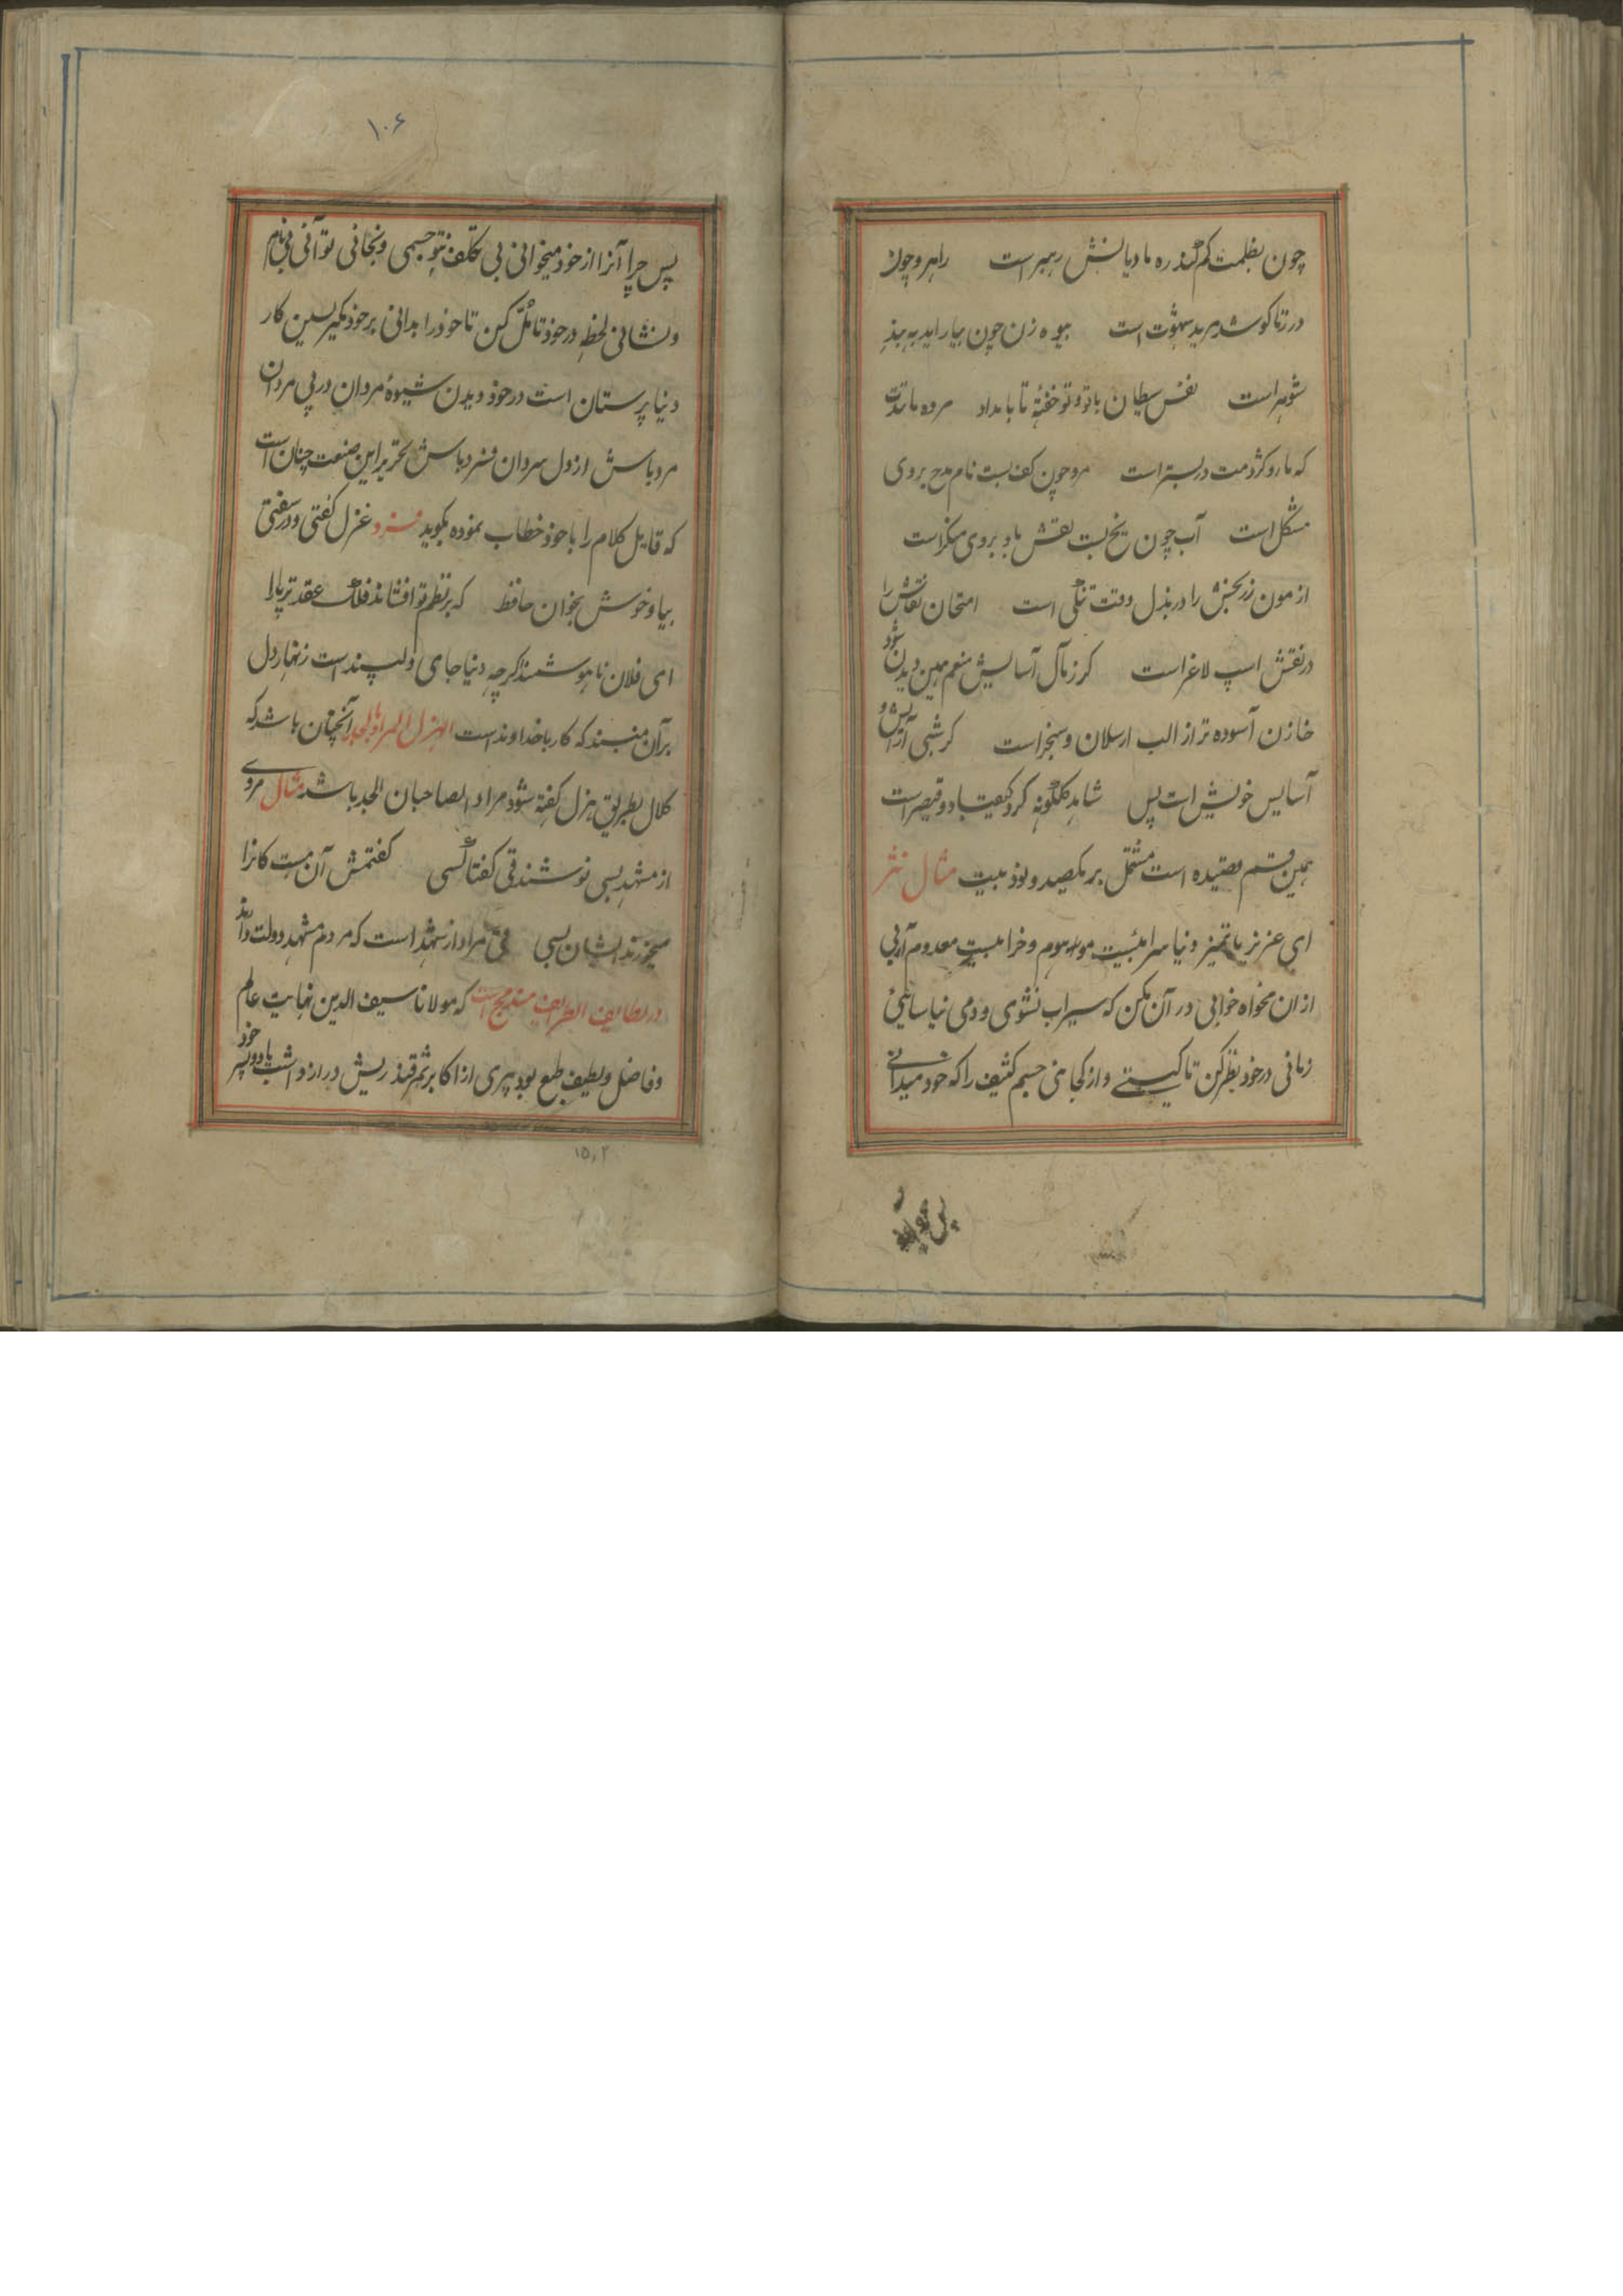 چون بظلمت گم کند ره مادیانش رهبر است راهرو چون
در زنا کوشد مرید سهوتست بیوه زن چون بیاراید به بند
شوهر است نفس سیطان با تو و تو خفتهٔ تا بامداد مرده مانندت
که مار و کژدمت در بستر است مرد چون کف بست نام مدح بروی
مشکل است آب چون یخ بست نقش باد بروی منکر است
ازمون زربخش را در بذل وقت تنگی است امتحان نقاش را
در نقش اسپ لاغر است کر زمال آسایش منعم همین دیدن شود
خازن آسوده تر از الب ارسلان و سنجر است کر شبی آرایش و
آسایس خویش است پس شاهد گلگونه کر کیقباد و قیصر است
همین قسم قصیده است مشتمل بر یکصد و نود بیت مثال نثر
ای عزیز با تمیز دنیا سرابیست موهوم و خرابیست معدوم آبی
ازان مخواه خوابی در آن مکن که سیراب نشوی و دمی نیاسائی
زمانی در خود نظر کن تا کیستی و از کجائی جسم کثیف را که خود میدانی
پس چرا
۱۰۶
پس چرا آنرا از خود میخوانی بی تکلف نتو جسمی و نجانی تو آنی بی نام
و نشانی لحظه در خود تامل کن تا خود را بدانی بر خود مگیر پسین کار
دنیا پرستان است در خود دیدن شیوهٔ مردان در پی مردان
مرد باش از دل مردان فرد باش تحریر این صنعت چنان است
که قایل کلام را با خود خطاب نموده بگوید فرد غزل گفتی و در سفتی
بیا و خوش بخوان حافظ که بر نظم تو افشاند فلک عقد ثریا را
ای فلان ناهوشمند اگرچه دنیا جای دلپسند است زنهار دل
بر آن مبند که کار با خداوند است الهزل المراد بالجد آنچنان باشد که
کلال بطریق هزل گفته شود مراد الصاحبان الجد باشد مثال مروی
از مشهد بسی نوشند قی گفتا کسی گفتمش آن هست کانرا
میخورند ایشان بسی قی مراد از شهد است که مردم مشهد دولت دارند
در لطایف الطرایف مندرج است که مولانا سیف الدین نهایت عالم
و فاضل و لطیف طبع بود پیری از اکابر سمرقند ریش دراز داشت با دو پسر خود
۱۵٫۲